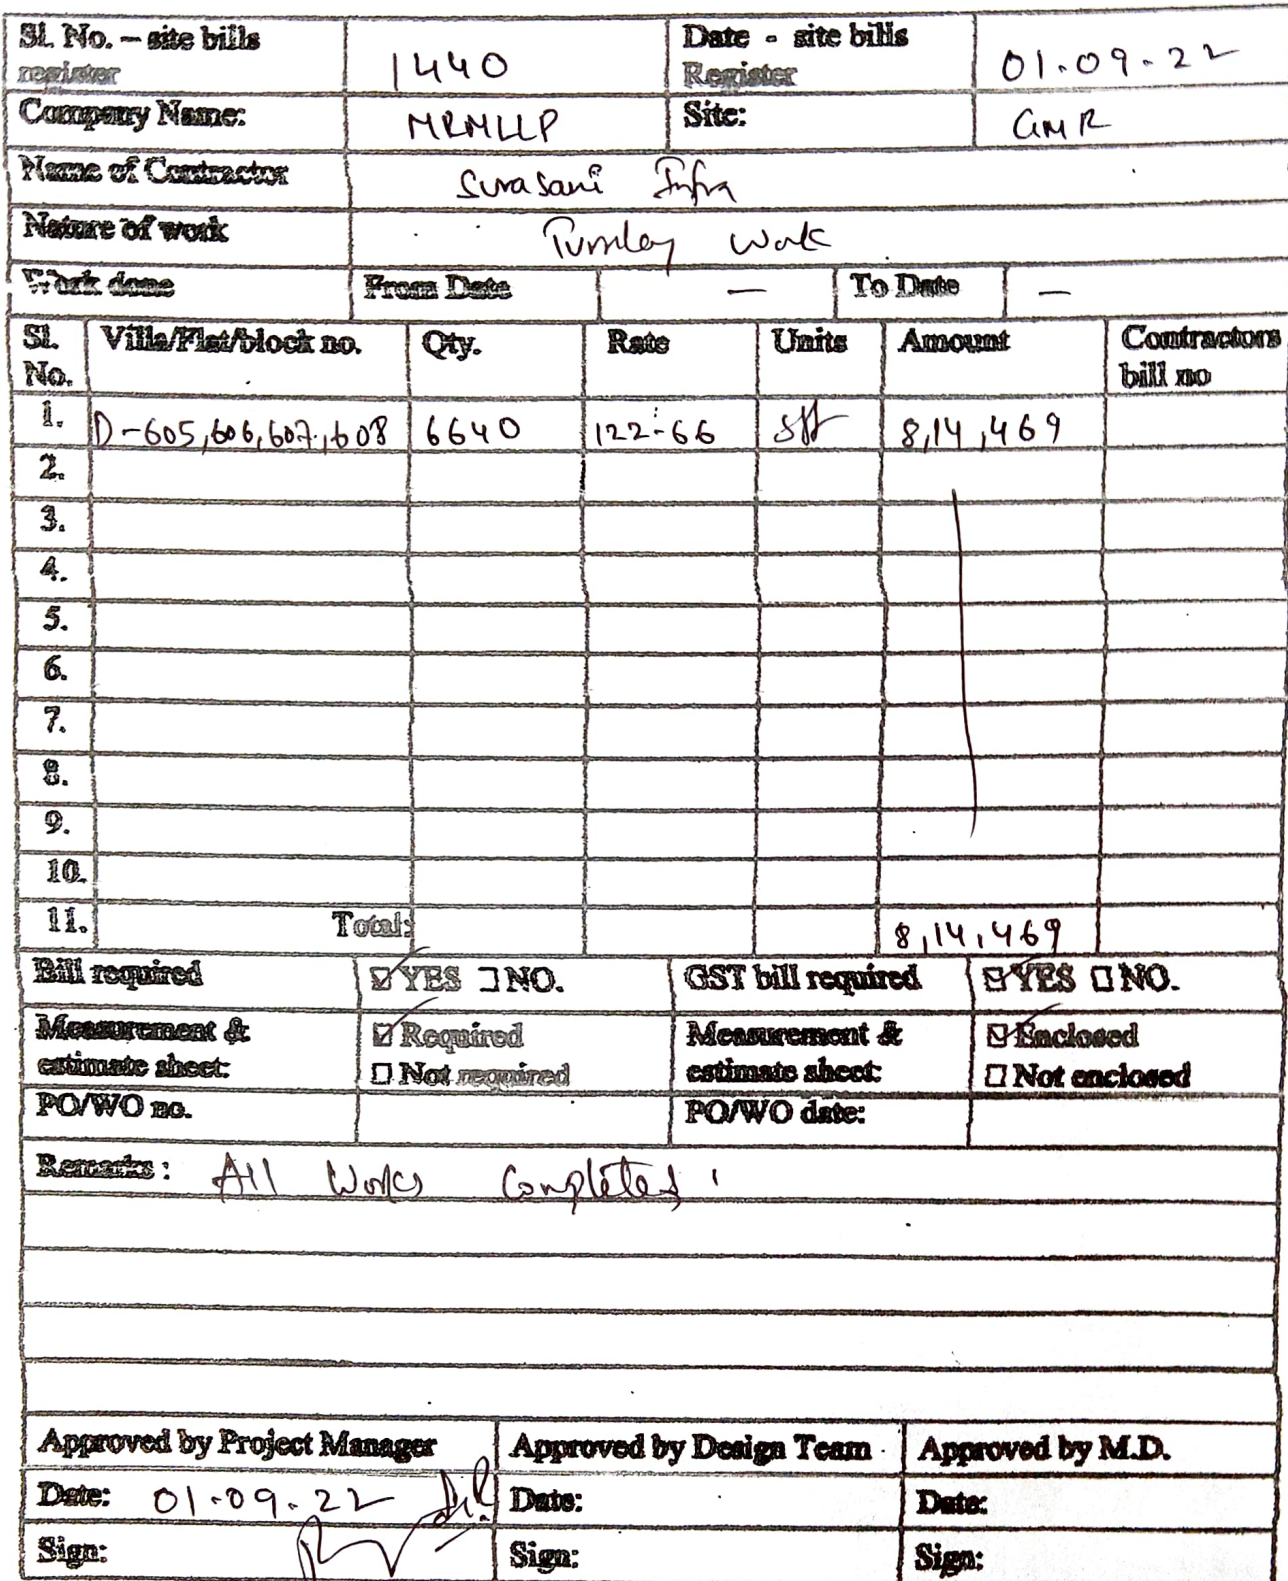 Sl. No. – site bills register 1440 Date - site bills Register 01.09.22
Company Name: MRMLLP Site: GMR
Name of Contractor Surasani Infra
Nature of work Turnkey Work
Work done From Date — To Date —
Sl. No. Villa/Flat/block no. Qty. Rate Units Amount Contractors bill no
1. D-605,606,607,608 6640 122-66 sft 8,14,469
2.
3.
4.
5.
6.
7.
8.
9.
10.
11. Total: 8,14,469
Bill required ☑ YES ☐ NO. GST bill required ☑ YES ☐ NO.
Measurement & estimate sheet: ☑ Required ☐ Not required Measurement & estimate sheet: ☑ Enclosed ☐ Not enclosed
PO/WO no. PO/WO date:
Remarks: All Works Completed
Approved by Project Manager Approved by Design Team Approved by M.D.
Date: 01.09.22 Date: Date:
Sign: Sign: Sign: